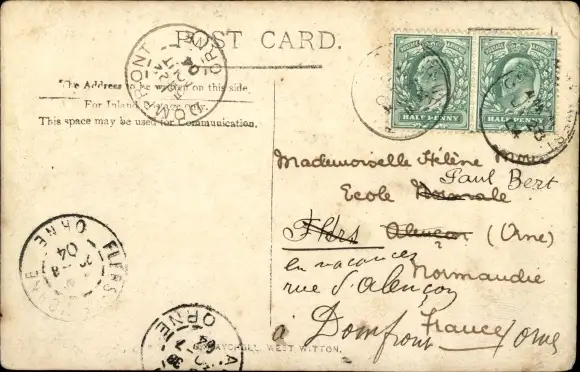 POST CARD.
DOMFRONT ORNE
The Address to be written on this side.
For Inland Postage only.
This space may be used for Communication.
HALF PENNY
HALF PENNY
Mademoiselle Hélène
Paul Bert
Ecole Normale
Flers Alençon (Orne)
en vacances Normandie
rue d'Alençon
à Domfront France Orne
FLERS ORNE 04
ORNE
WEST WITTON.